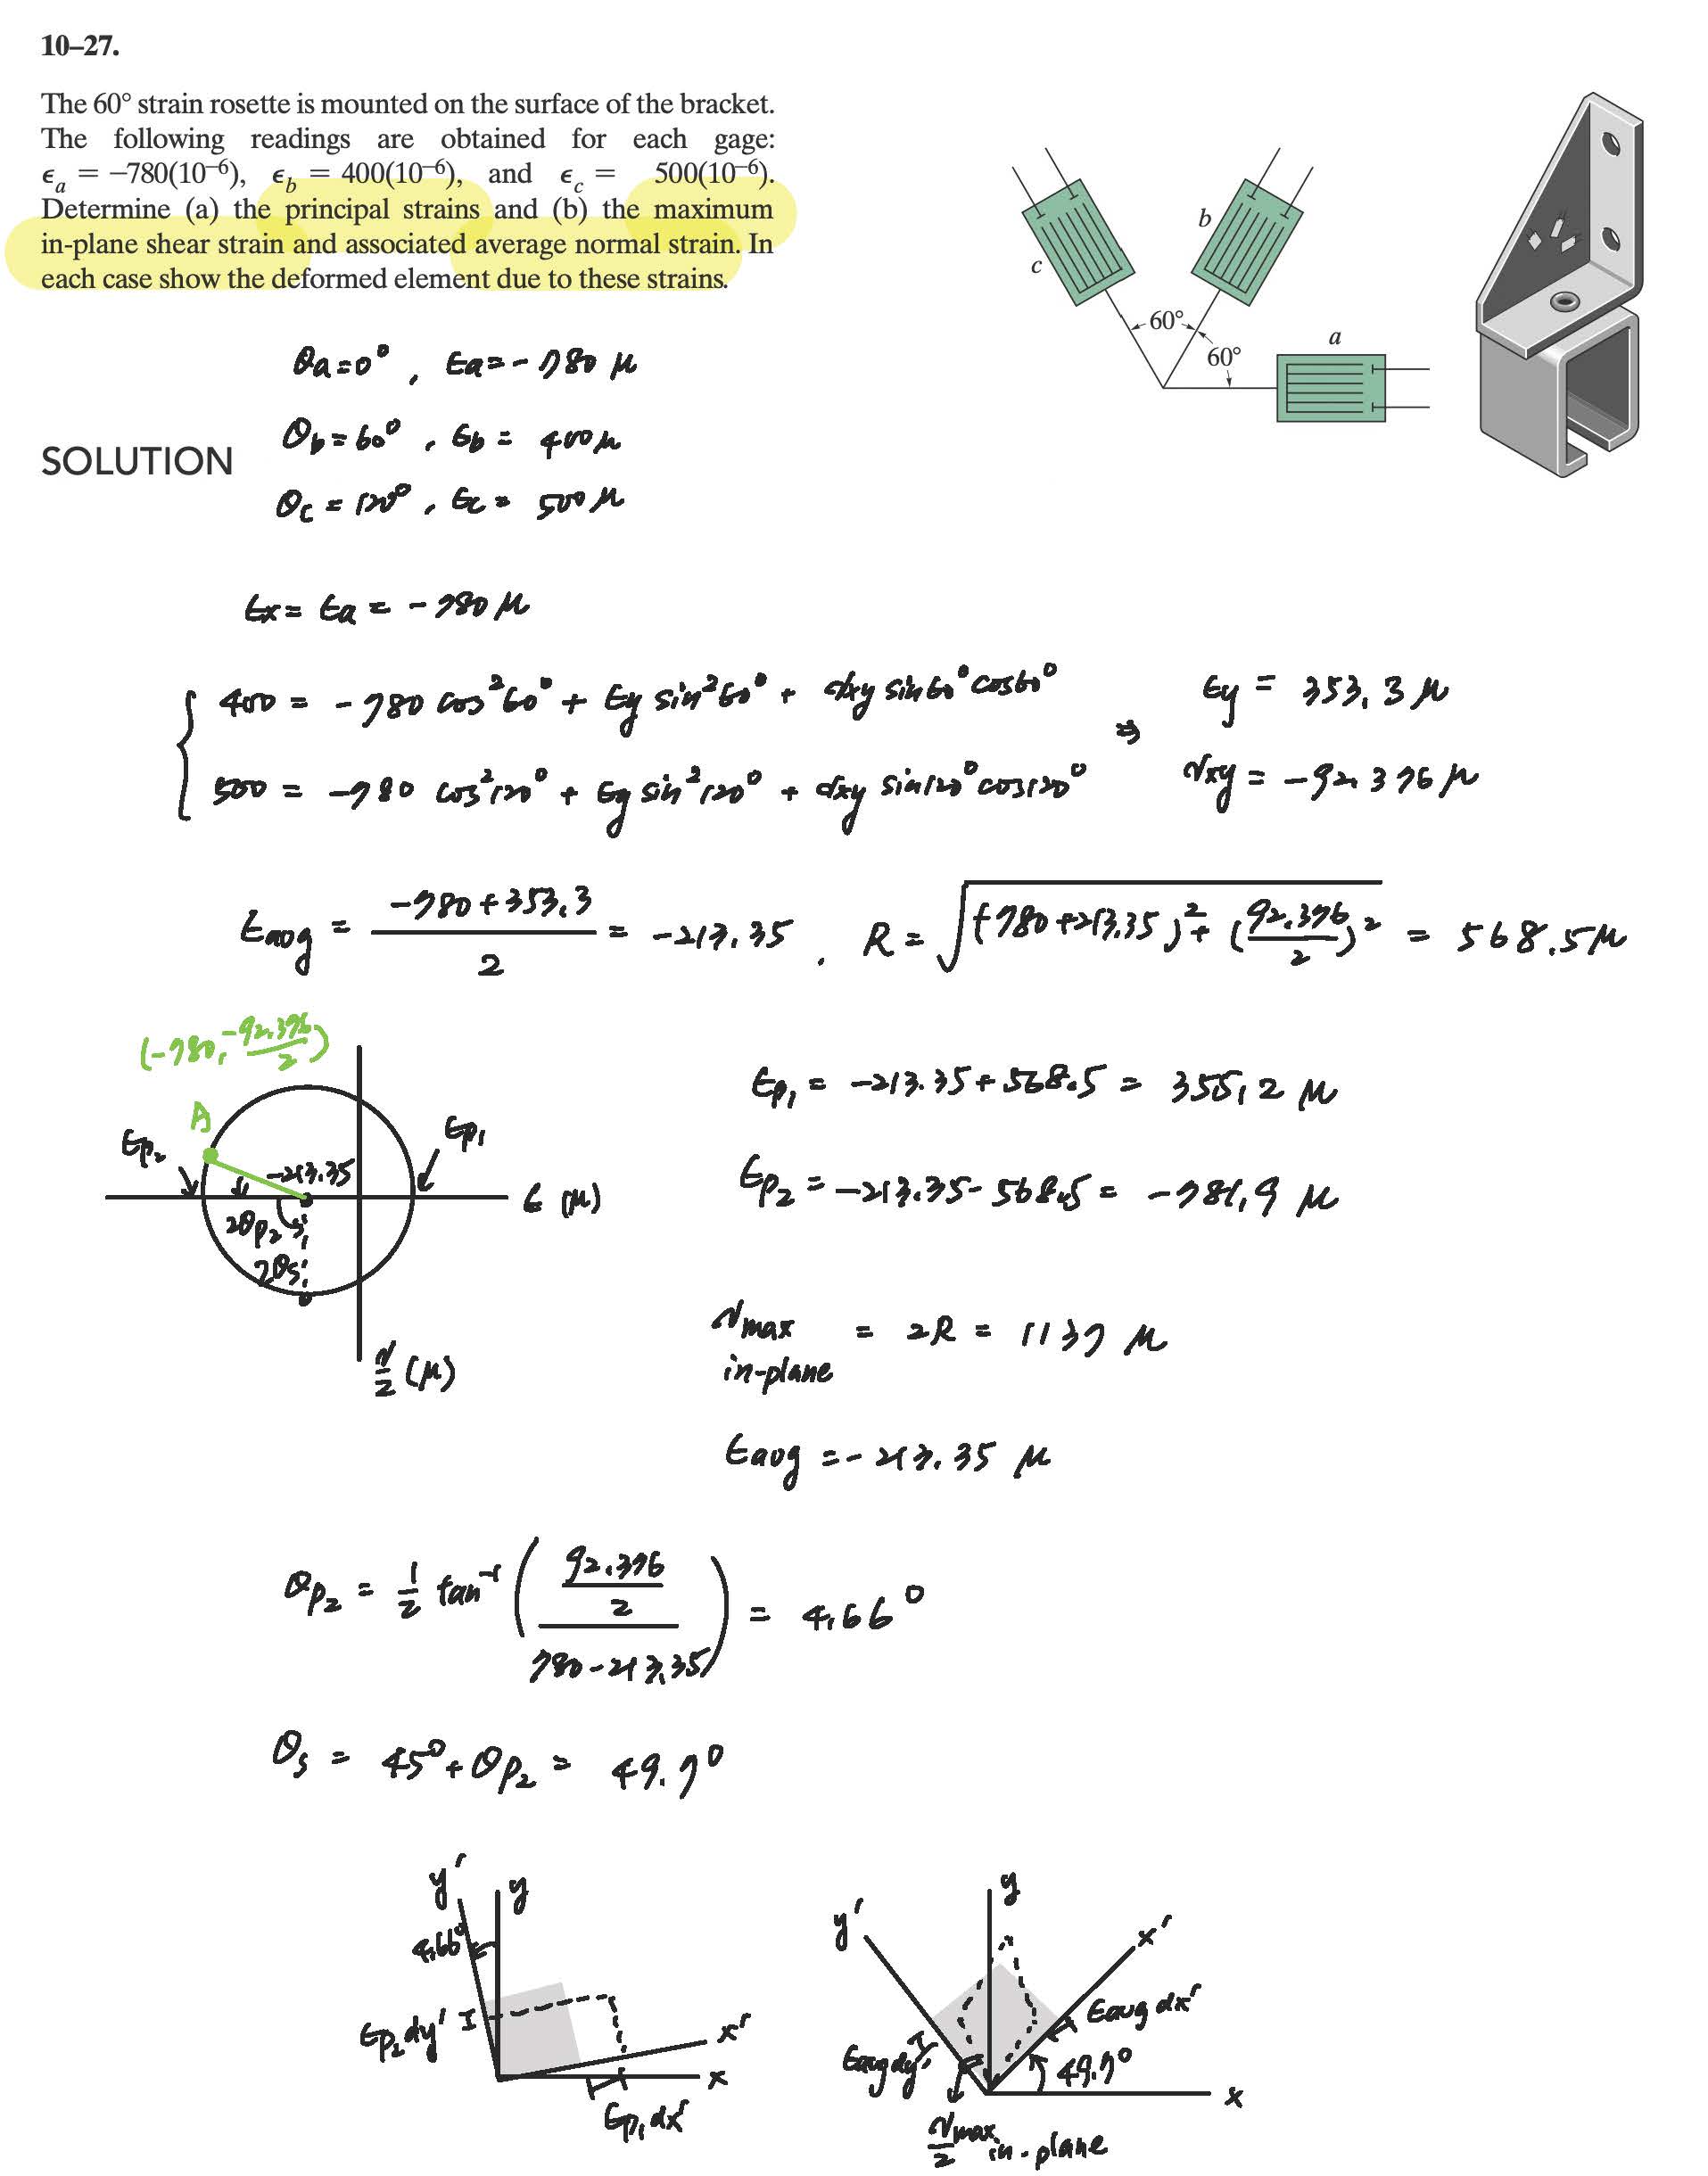 10–27.
The 60° strain rosette is mounted on the surface of the bracket.
The following readings are obtained for each gage:
ϵₐ = −780(10⁻⁶), ϵ_b = 400(10⁻⁶), and ϵ_c = 500(10⁻⁶).
Determine (a) the principal strains and (b) the maximum
in-plane shear strain and associated average normal strain. In
each case show the deformed element due to these strains.
c
b
60°
60°
a
θa=0° , ϵa=-780 μ
θb=60° , ϵb = 400μ
SOLUTION
θc = 120° , ϵc = 500 μ
ϵx = ϵa = -780 μ
400 = -780 cos²60° + ϵy sin²60° + γxy sin60°cos60°
500 = -780 cos²120° + ϵy sin²120° + γxy sin120°cos120°
⇒
ϵy = 353.3 μ
γxy = -92.376 μ
ϵavg = (-780+353.3)/2 = -213.35 , R = √((-780+213.35)² + (92.376/2)²) = 568.5μ
(-780, -92.376/2)
A
ϵp₂
ϵp₁
-213.35
ϵ (μ)
2θp₂
2θs
γ/2 (μ)
ϵp₁ = -213.35+568.5 = 355.2 μ
ϵp₂ = -213.35-568.5 = -781.9 μ
γmax in-plane = 2R = 1137 μ
ϵavg = -213.35 μ
θp₂ = 1/2 tan⁻¹((92.376/2)/(780-213.35)) = 4.66°
θs = 45°+θp₂ = 49.7°
y'
y
4.66°
ϵp₂dy'
x'
x
ϵp₁dx'
y'
y
x'
ϵavg dx'
ϵavg dy'
49.7°
x
γmax/2 in-plane